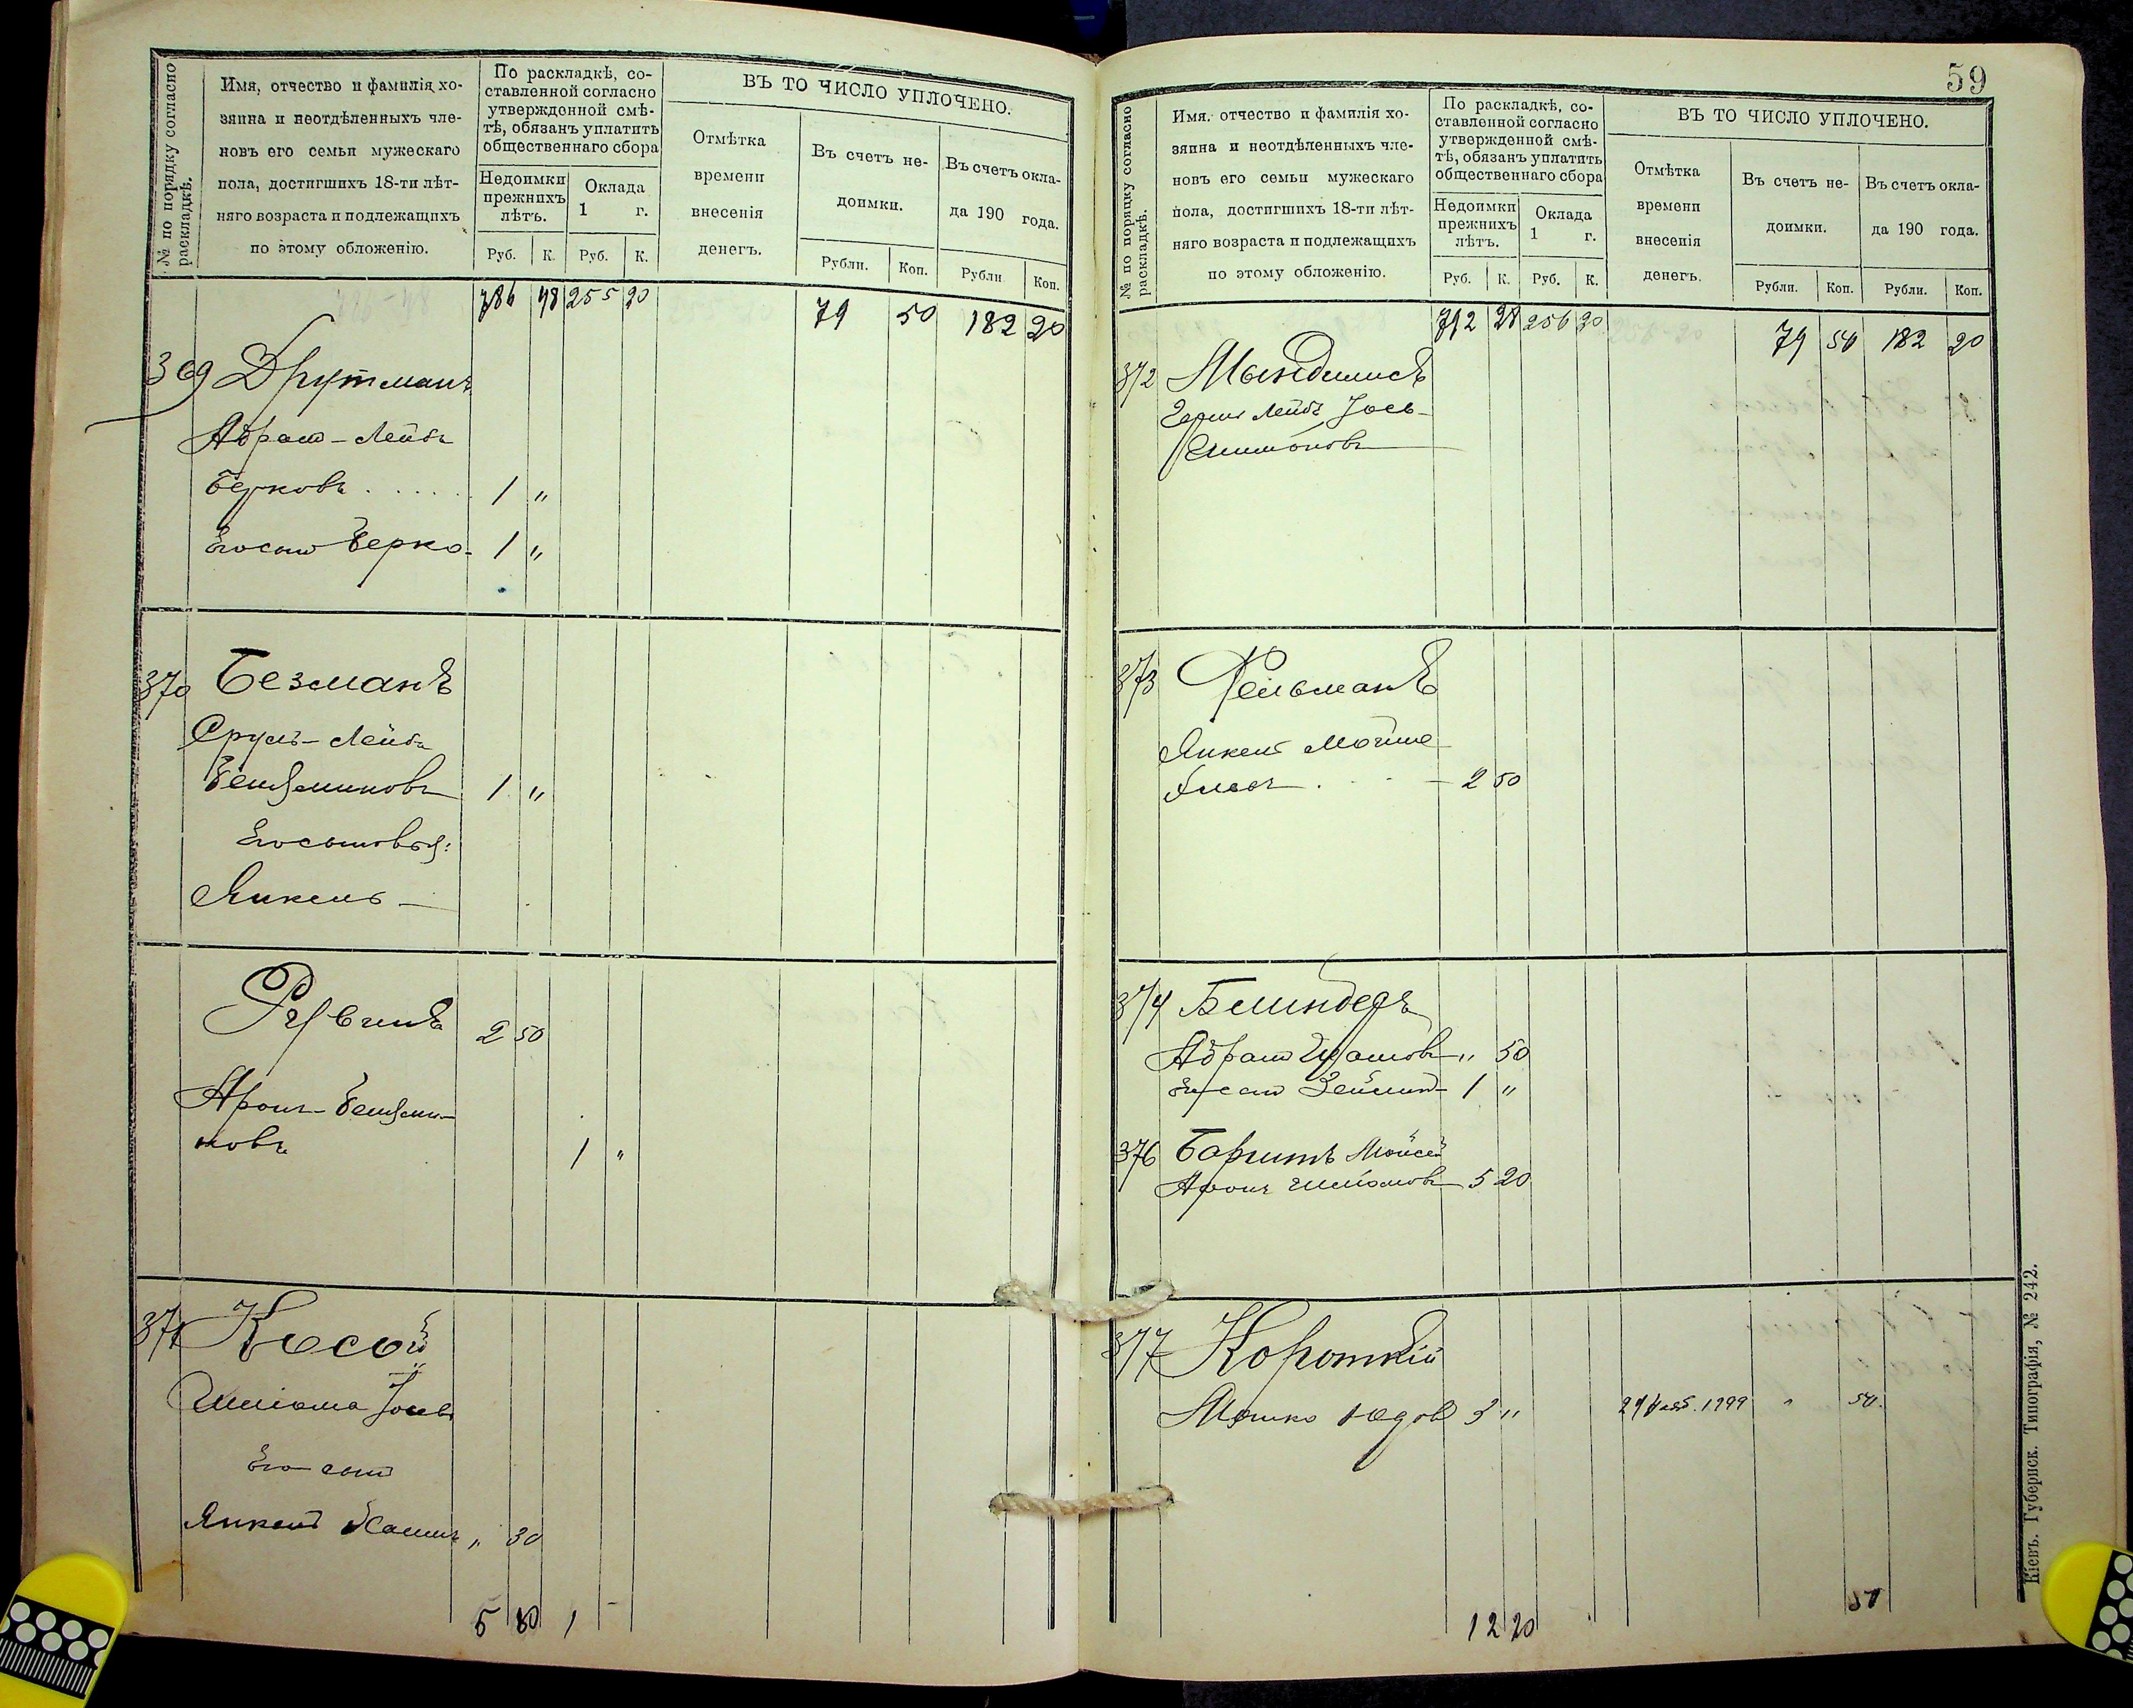 № по порядку согласно раскладкѣ.
Имя, отчество и фамилія хо-
зяина и неотдѣленныхъ чле-
новъ его семьи мужескаго
пола, достигшихъ 18-ти лѣт-
няго возраста и подлежащихъ
по этому обложенію.
По раскладкѣ, со-
ставленной согласно
утвержденной смѣ-
тѣ, обязанъ уплатить
общественнаго сбора
Недоимки
прежнихъ
лѣтъ.
Оклада
1 г.
Руб. К. Руб. К.
ВЪ ТО ЧИСЛО УПЛОЧЕНО.
Отмѣтка
времени
внесенія
денегъ.
Въ счетъ не-
доимки.
Въ счетъ окла-
да 190 года.
Рубли. Коп. Рубли Коп.
786 48 255 20 79 50 182 20
369 Друтманъ
Абрам-Лейбъ
Берковъ . . . . . 1 "
Его сын Берко- 1 "
370 Безманъ
Сруль-Лейбъ
Беньяминовъ 1 "
Его сыновья:
Янкель —
2 50
Арон-Беньями-
новъ 1 "
371 Косой
Шлiома Iосев
Его сын
Янкель " 30
5 80 1 -
59
№ по порядку согласно раскладкѣ.
Имя, отчество и фамилія хо-
зяина и неотдѣленныхъ чле-
новъ его семьи мужескаго
пола, достигшихъ 18-ти лѣт-
няго возраста и подлежащихъ
по этому обложенію.
По раскладкѣ, со-
ставленной согласно
утвержденной смѣ-
тѣ, обязанъ уплатить
общественнаго сбора
Недоимки
прежнихъ
лѣтъ.
Оклада
1 г.
Руб. К. Руб. К.
ВЪ ТО ЧИСЛО УПЛОЧЕНО.
Отмѣтка
времени
внесенія
денегъ.
Въ счетъ не-
доимки.
Въ счетъ окла-
да 190 года.
Рубли. Коп. Рубли. Коп.
792 28 256 20 79 50 182 20
372
Лейбъ Iось-
Симоновъ
373
Янкель Мойше
2 50
374 Блиндеръ
Абрам " 50
Его сын Зейлик- 1 "
376 Мойсей
Арон Шлiомов 5 20
377 Короткiй
Мошко Юдов 3 " 1899 " 50.
12 20 50
Кіевъ. Губернск. Типографія, № 242.